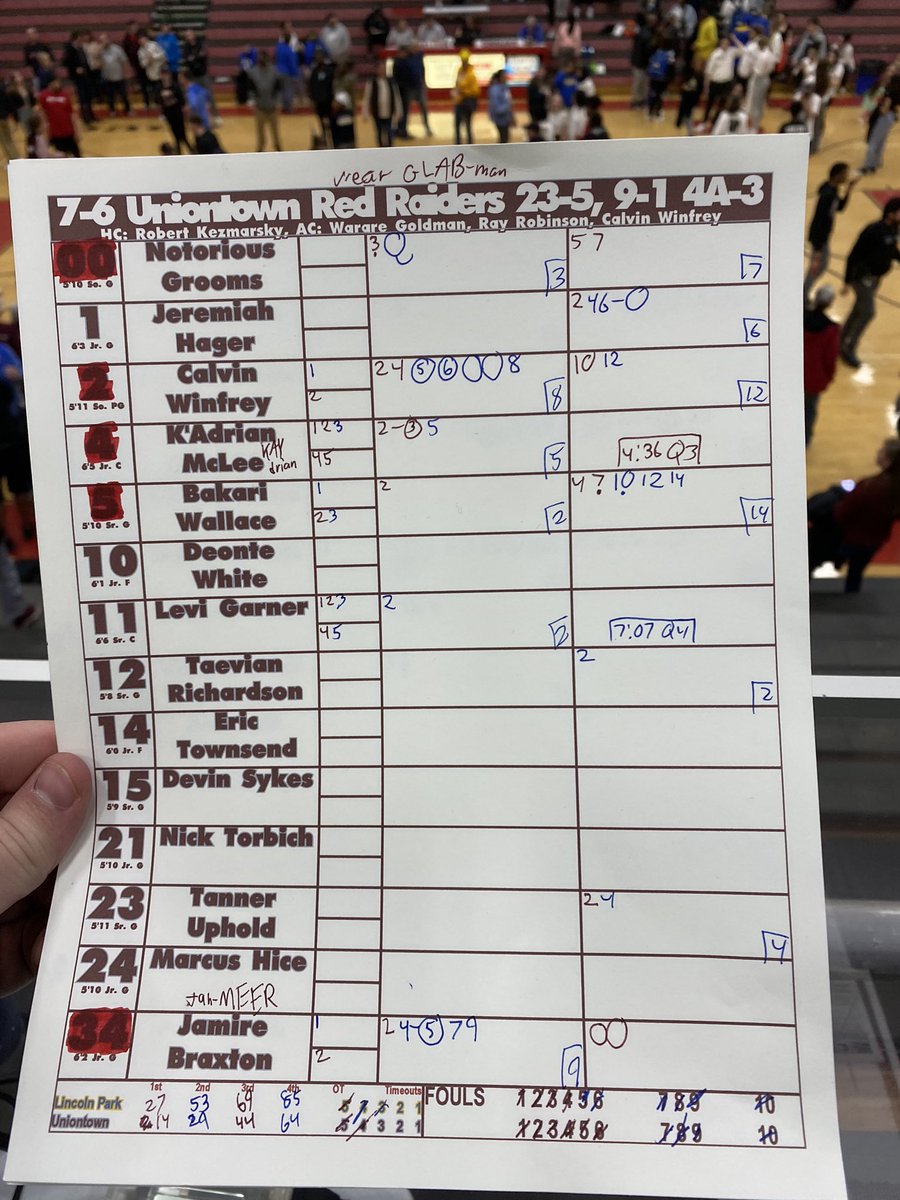 year GLAB-man
7-6 Uniontown Red Raiders 23-5, 9-1 4A-3
HC: Robert Kezmarsky, AC: Warare Goldman, Ray Robinson, Calvin Winfrey
00 Notorious Grooms 3 5 7
5'10 So. G 3 7
1 Jeremiah Hager 2 4 6 - O
6'3 Jr. G 6
2 Calvin Winfrey 1 2 4 5 6 O O 8 10 12
5'11 So. PG 2 8 12
4 K'Adrian McLee 1 2 3 2 - 3 5
KAY drian
6'5 Jr. C 4 5 5 4:36 Q3
5 Bakari Wallace 1 2 4 7 10 12 14
5'10 Sr. G 2 3 2 14
10 Deonte White
6'1 Jr. F
11 Levi Garner 1 2 3 2
6'6 Sr. C 4 5 2 7:07 Q4
12 Taevian Richardson 2
5'8 Sr. G 2
14 Eric Townsend
6'0 Jr. F
15 Devin Sykes
5'9 Sr. G
21 Nick Torbich
5'10 Jr. G
23 Tanner Uphold 2 4
5'11 Sr. G 4
24 Marcus Hice
5'10 Jr. G
Jah-MEER
34 Jamire Braxton 1 2 4 - 5 7 9 O O
6'2 Jr. G 2 9
1st 2nd 3rd 4th OT Timeouts FOULS 1 2 3 4 5 6 7 8 9 10
Lincoln Park 27 53 69 85 5 4 3 2 1
Uniontown 14 29 44 64 5 4 3 2 1 1 2 3 4 5 6 7 8 9 10